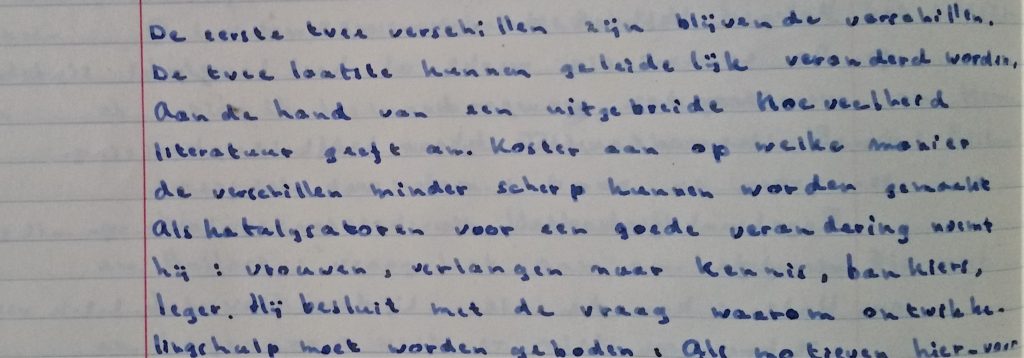 De eerste twee verschillen zijn blijvende verschillen.
De twee laatste kunnen geleidelijk veranderd worden.
Aan de hand van een uitgebreide hoeveelheid
literatuur geeft am. Koster aan op welke manier
de verschillen minder scherp kunnen worden gemaakt
Als katalysatoren voor een goede verandering noemt
hij : vrouwen, verlangen naar kennis, bankiers,
leger. Hij besluit met de vraag waarom ontwikke-
lingshulp moet worden geboden : Als motieven hier-voor